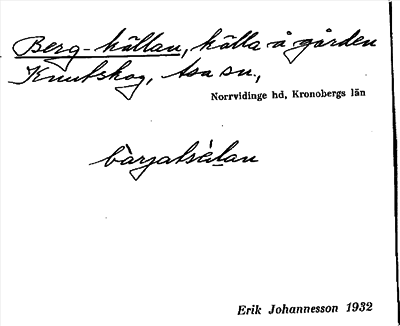 Berg-källan, källa å gården
Knutskog, tsa sn.,
Norrvidinge hd, Kronobergs län
Erik Johannesson 1932